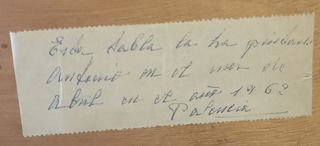 Esta tabla la ha pintado
Antonio en el mes de
abril en el año 1962
Palencia